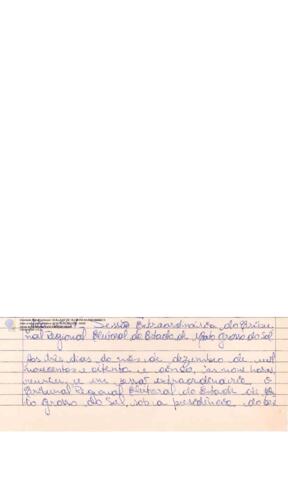 Sessão Extraordinária do Tribu
nal Regional Eleitoral do Estado de Mato Grosso do Sul
Aos três dias do mês de dezembro de mil
novecentos e oitenta e cinco, às nove horas
reuniu-se em sessão extraordinária o
Tribunal Regional Eleitoral do Estado de Ma
to Grosso do Sul, sob a presidência do De